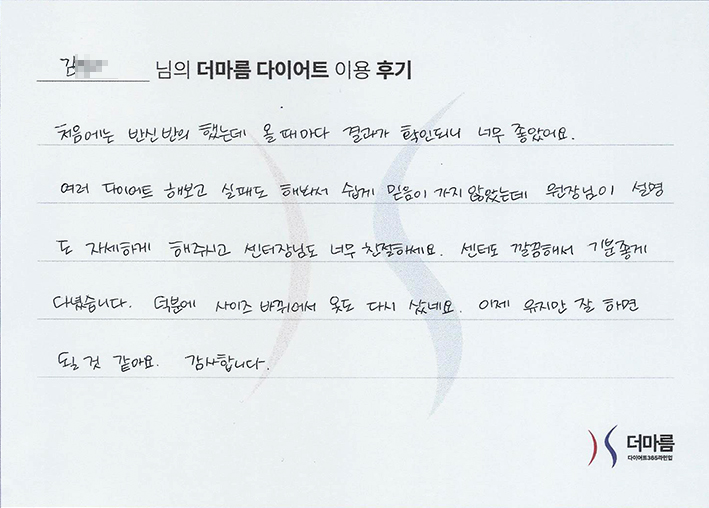 김 님의 더마름 다이어트 이용 후기
처음에는 반신반의 했는데 올 때마다 결과가 확인되니 너무 좋았어요.
여러 다이어트 해보고 실패도 해봐서 쉽게 믿음이 가지 않았는데 원장님이 설명
도 자세하게 해주시고 센터장님도 너무 친절하세요. 센터도 깔끔해서 기분좋게
다녔습니다. 덕분에 사이즈 바뀌어서 옷도 다시 샀네요. 이제 유지만 잘 하면
될 것 같아요. 감사합니다.
더마름
다이어트365라인업